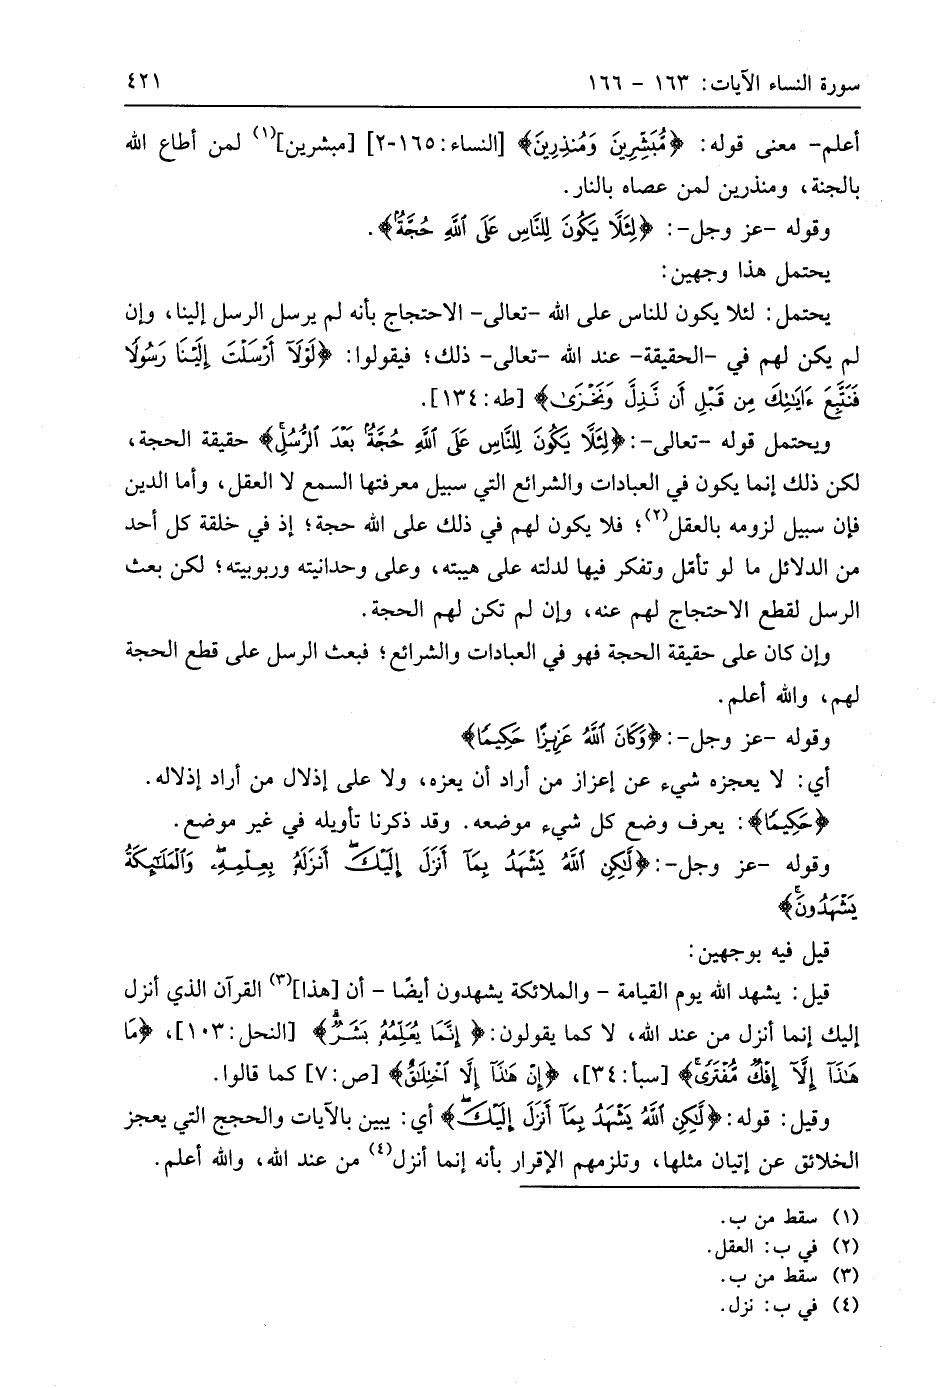 سورة النساء الآيات: ١٦٣ - ١٦٦ ٤٢١
أعلم- معنى قوله: ﴿مُّبَشِّرِينَ وَمُنذِرِينَ﴾ [النساء:١٦٥-٢] [مبشرين](١) لمن أطاع الله
بالجنة، ومنذرين لمن عصاه بالنار.
وقوله -عز وجل-: ﴿لِئَلَّا يَكُونَ لِلنَّاسِ عَلَى ٱللَّهِ حُجَّةٌۢ﴾.
يحتمل هذا وجهين:
يحتمل: لئلا يكون للناس على الله -تعالى- الاحتجاج بأنه لم يرسل الرسل إلينا، وإن
لم يكن لهم في -الحقيقة- عند الله -تعالى- ذلك؛ فيقولوا: ﴿لَوْلَآ أَرْسَلْتَ إِلَيْنَا رَسُولًا
فَنَتَّبِعَ ءَايَـٰتِكَ مِن قَبْلِ أَن نَّذِلَّ وَنَخْزَىٰ﴾ [طه:١٣٤].
ويحتمل قوله -تعالى-: ﴿لِئَلَّا يَكُونَ لِلنَّاسِ عَلَى ٱللَّهِ حُجَّةٌۢ بَعْدَ ٱلرُّسُلِۚ﴾ حقيقة الحجة،
لكن ذلك إنما يكون في العبادات والشرائع التي سبيل معرفتها السمع لا العقل، وأما الدين
فإن سبيل لزومه بالعقل(٢)؛ فلا يكون لهم في ذلك على الله حجة؛ إذ في خلقة كل أحد
من الدلائل ما لو تأمّل وتفكر فيها لدلته على هيبته، وعلى وحدانيته وربوبيته؛ لكن بعث
الرسل لقطع الاحتجاج لهم عنه، وإن لم تكن لهم الحجة.
وإن كان على حقيقة الحجة فهو في العبادات والشرائع؛ فبعث الرسل على قطع الحجة
لهم، والله أعلم.
وقوله -عز وجل-: ﴿وَكَانَ ٱللَّهُ عَزِيزًا حَكِيمًا﴾
أي: لا يعجزه شيء عن إعزاز من أراد أن يعزه، ولا على إذلال من أراد إذلاله.
﴿حَكِيمًا﴾: يعرف وضع كل شيء موضعه. وقد ذكرنا تأويله في غير موضع.
وقوله -عز وجل-: ﴿لَّـٰكِنِ ٱللَّهُ يَشْهَدُ بِمَآ أَنزَلَ إِلَيْكَۖ أَنزَلَهُۥ بِعِلْمِهِۦۖ وَٱلْمَلَـٰٓئِكَةُ
يَشْهَدُونَۚ﴾
قيل فيه بوجهين:
قيل: يشهد الله يوم القيامة - والملائكة يشهدون أيضًا - أن [هذا](٣) القرآن الذي أنزل
إليك إنما أنزل من عند الله، لا كما يقولون: ﴿إِنَّمَا يُعَلِّمُهُۥ بَشَرٌۗ﴾ [النحل:١٠٣]، ﴿مَا
هَـٰذَآ إِلَّآ إِفْكٌ مُّفْتَرًىۚ﴾ [سبأ:٣٤]، ﴿إِنْ هَـٰذَآ إِلَّا ٱخْتِلَـٰقٌ﴾ [ص:٧] كما قالوا.
وقيل: قوله: ﴿لَّـٰكِنِ ٱللَّهُ يَشْهَدُ بِمَآ أَنزَلَ إِلَيْكَۖ﴾ أي: يبين بالآيات والحجج التي يعجز
الخلائق عن إتيان مثلها، وتلزمهم الإقرار بأنه إنما أنزل(٤) من عند الله، والله أعلم.
(١) سقط من ب.
(٢) في ب: العقل.
(٣) سقط من ب.
(٤) في ب: نزل.